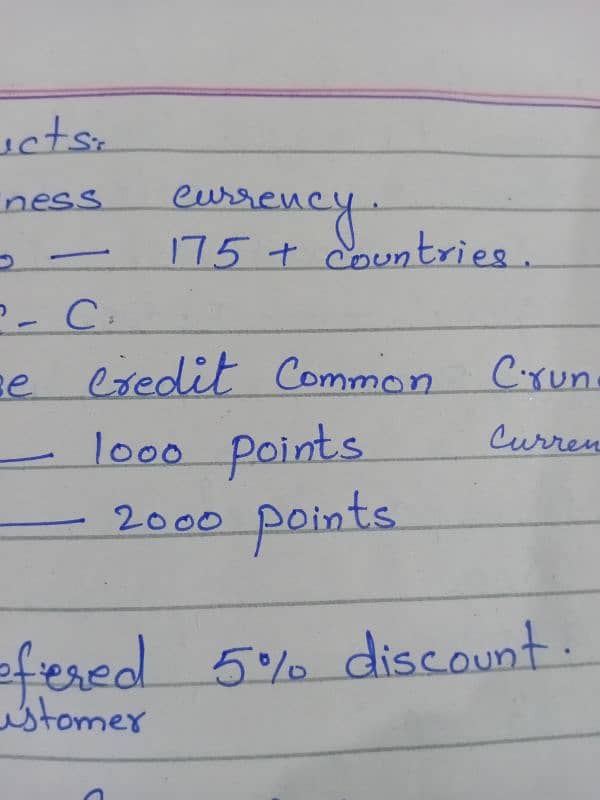 ucts:-
ness currency.
— 175 + Countries.
- C.
se credit Common C.run
— 1000 points Curren
— 2000 points
efered 5% discount.
ustomer